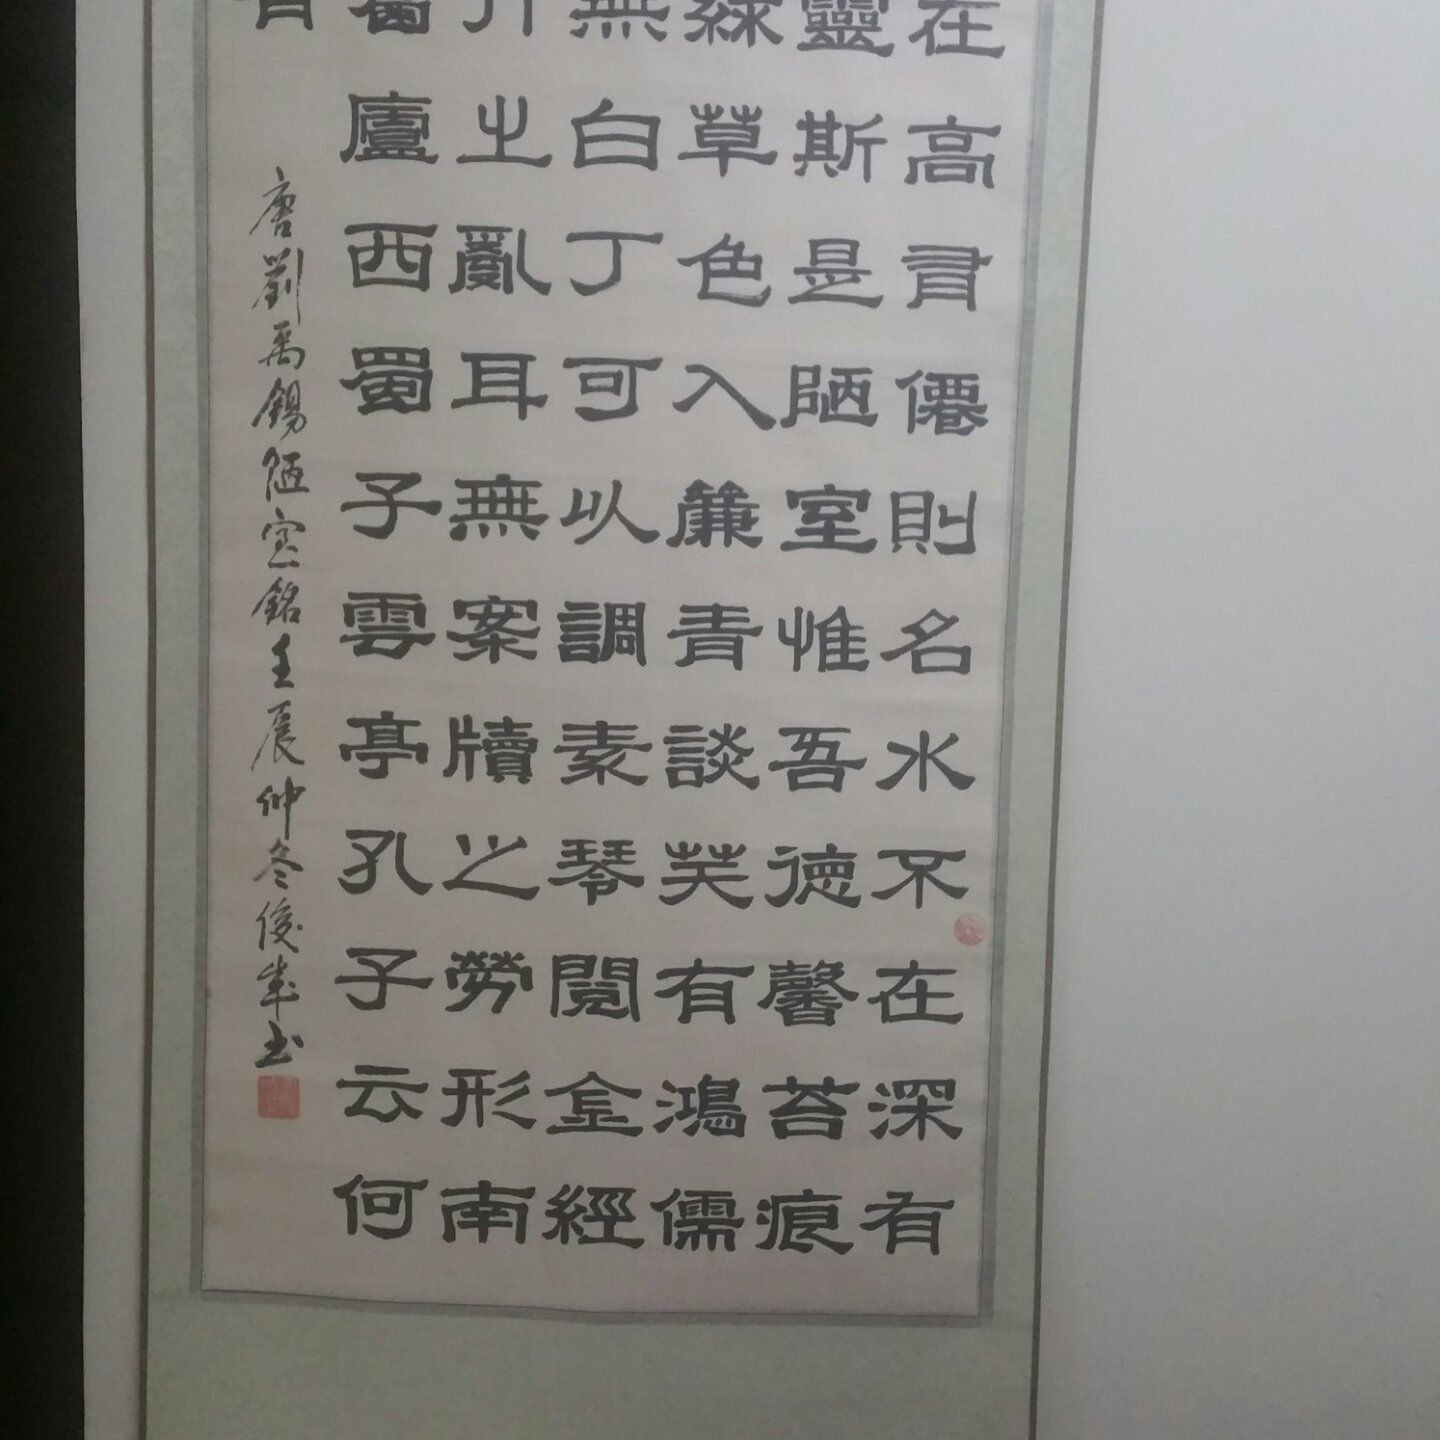 在高有僊則名水不在深有
靈斯是陋室惟吾德馨苔痕
綠草色入簾青談笑有鴻儒
無白丁可以調素琴閱金經
竹之亂耳無案牘之勞形南
葛廬西蜀子雲亭孔子云何
有
唐劉禹錫陋室銘壬辰仲冬俊书